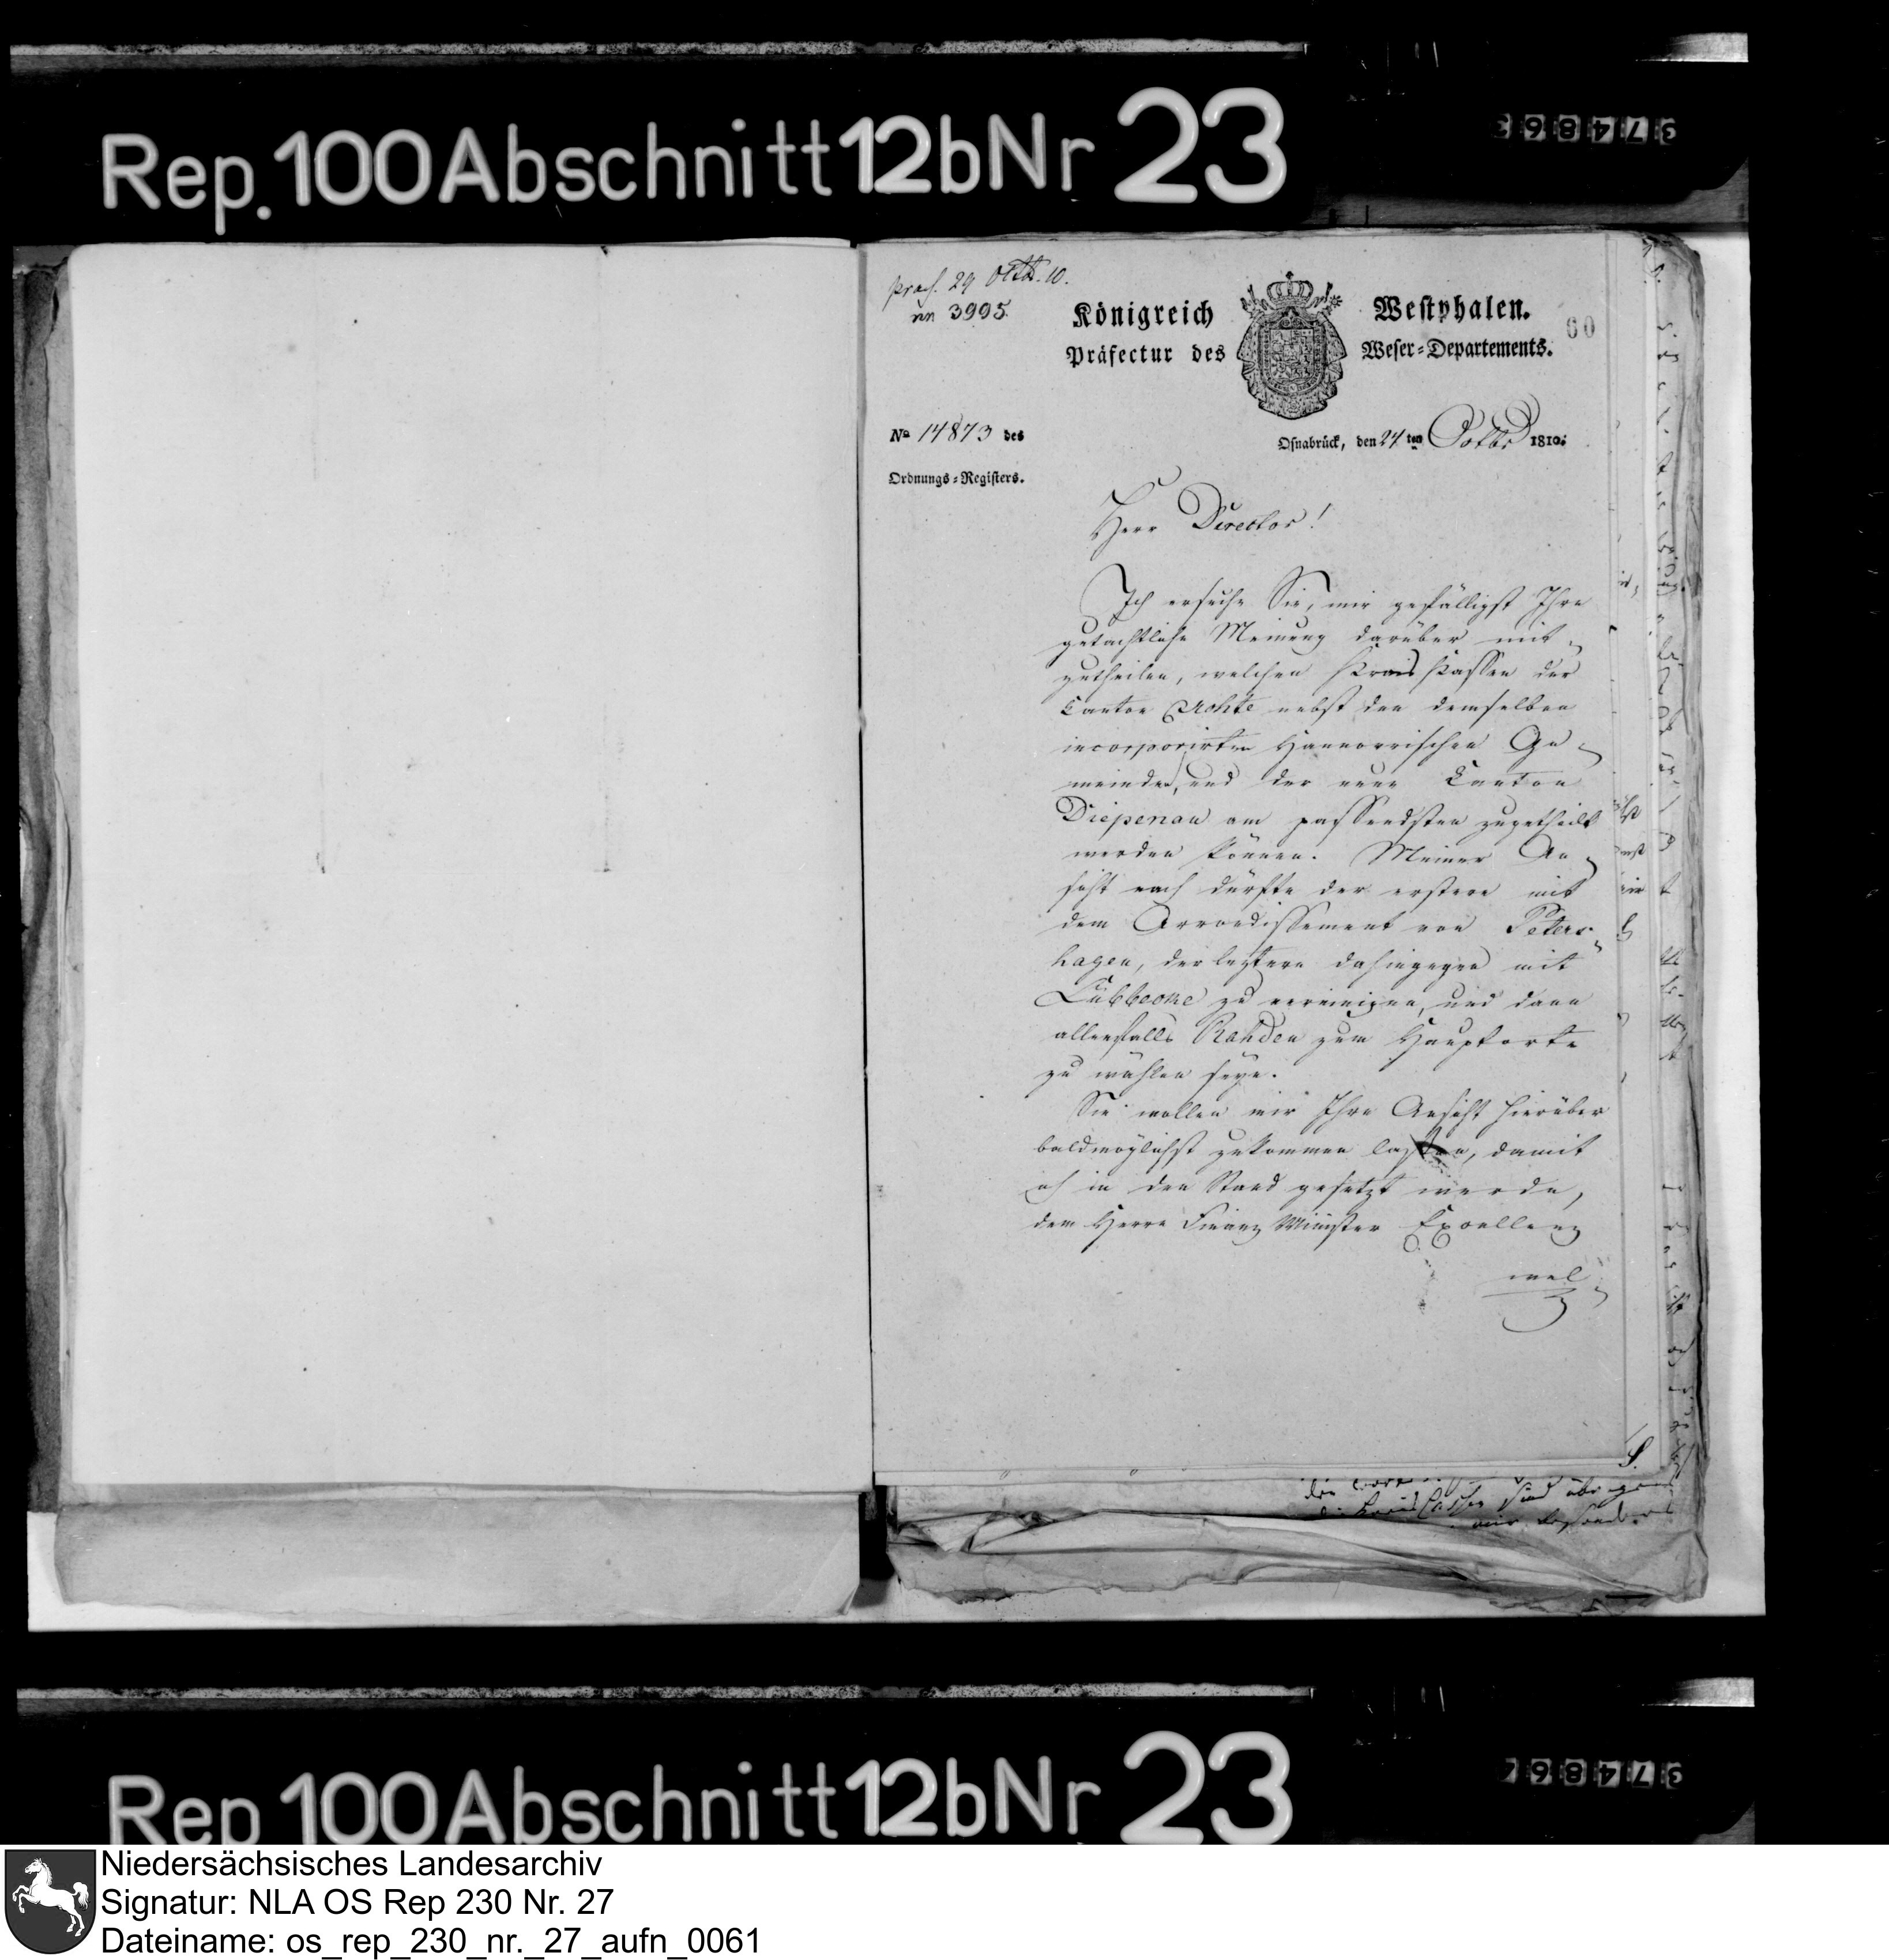 Rep. 100 Abschnitt 12b Nr 23
374863
praes. 29 Octb. 10.
nn 3995.
Königreich Westphalen.
60
Präfectur des Weser=Departements.
No 14873 des
Osnabrück, den 24 ten Octbr 1810.
Ordnungs=Registers.
Herr Director!
Ich ersuche Sie, mir gefälligst Ihre
gutachtliche Meinung darüber mit=
zutheilen, welchen Kreis Kassen der
Canton Uchte nebst den demselben
incorporirten Hannovrischen Ge=
meinden, und der neue Canton
Diepenau am passendsten zugetheilt
werden können. Meiner An=
sicht nach dürfte der erstere mit
dem Arrondissement von Peters=
hagen, der leztere dahingegen mit
Lübbecke zu vereinigen, und dann
allenfalls Rahden zum Hauptorte
zu wählen seyn.
Sie wollen mir Ihre Ansicht hierüber
baldmöglichst zukommen lassen, damit
ich in den Stand gesetzt werde,
dem Herrn Finanz Minister Excellenz
wel=
die Kreis Cassen sind übrigens
mir besonders
Rep 100 Abschnitt 12b Nr 23
37486
Niedersächsisches Landesarchiv
Signatur: NLA OS Rep 230 Nr. 27
Dateiname: os_rep_230_nr._27_aufn_0061